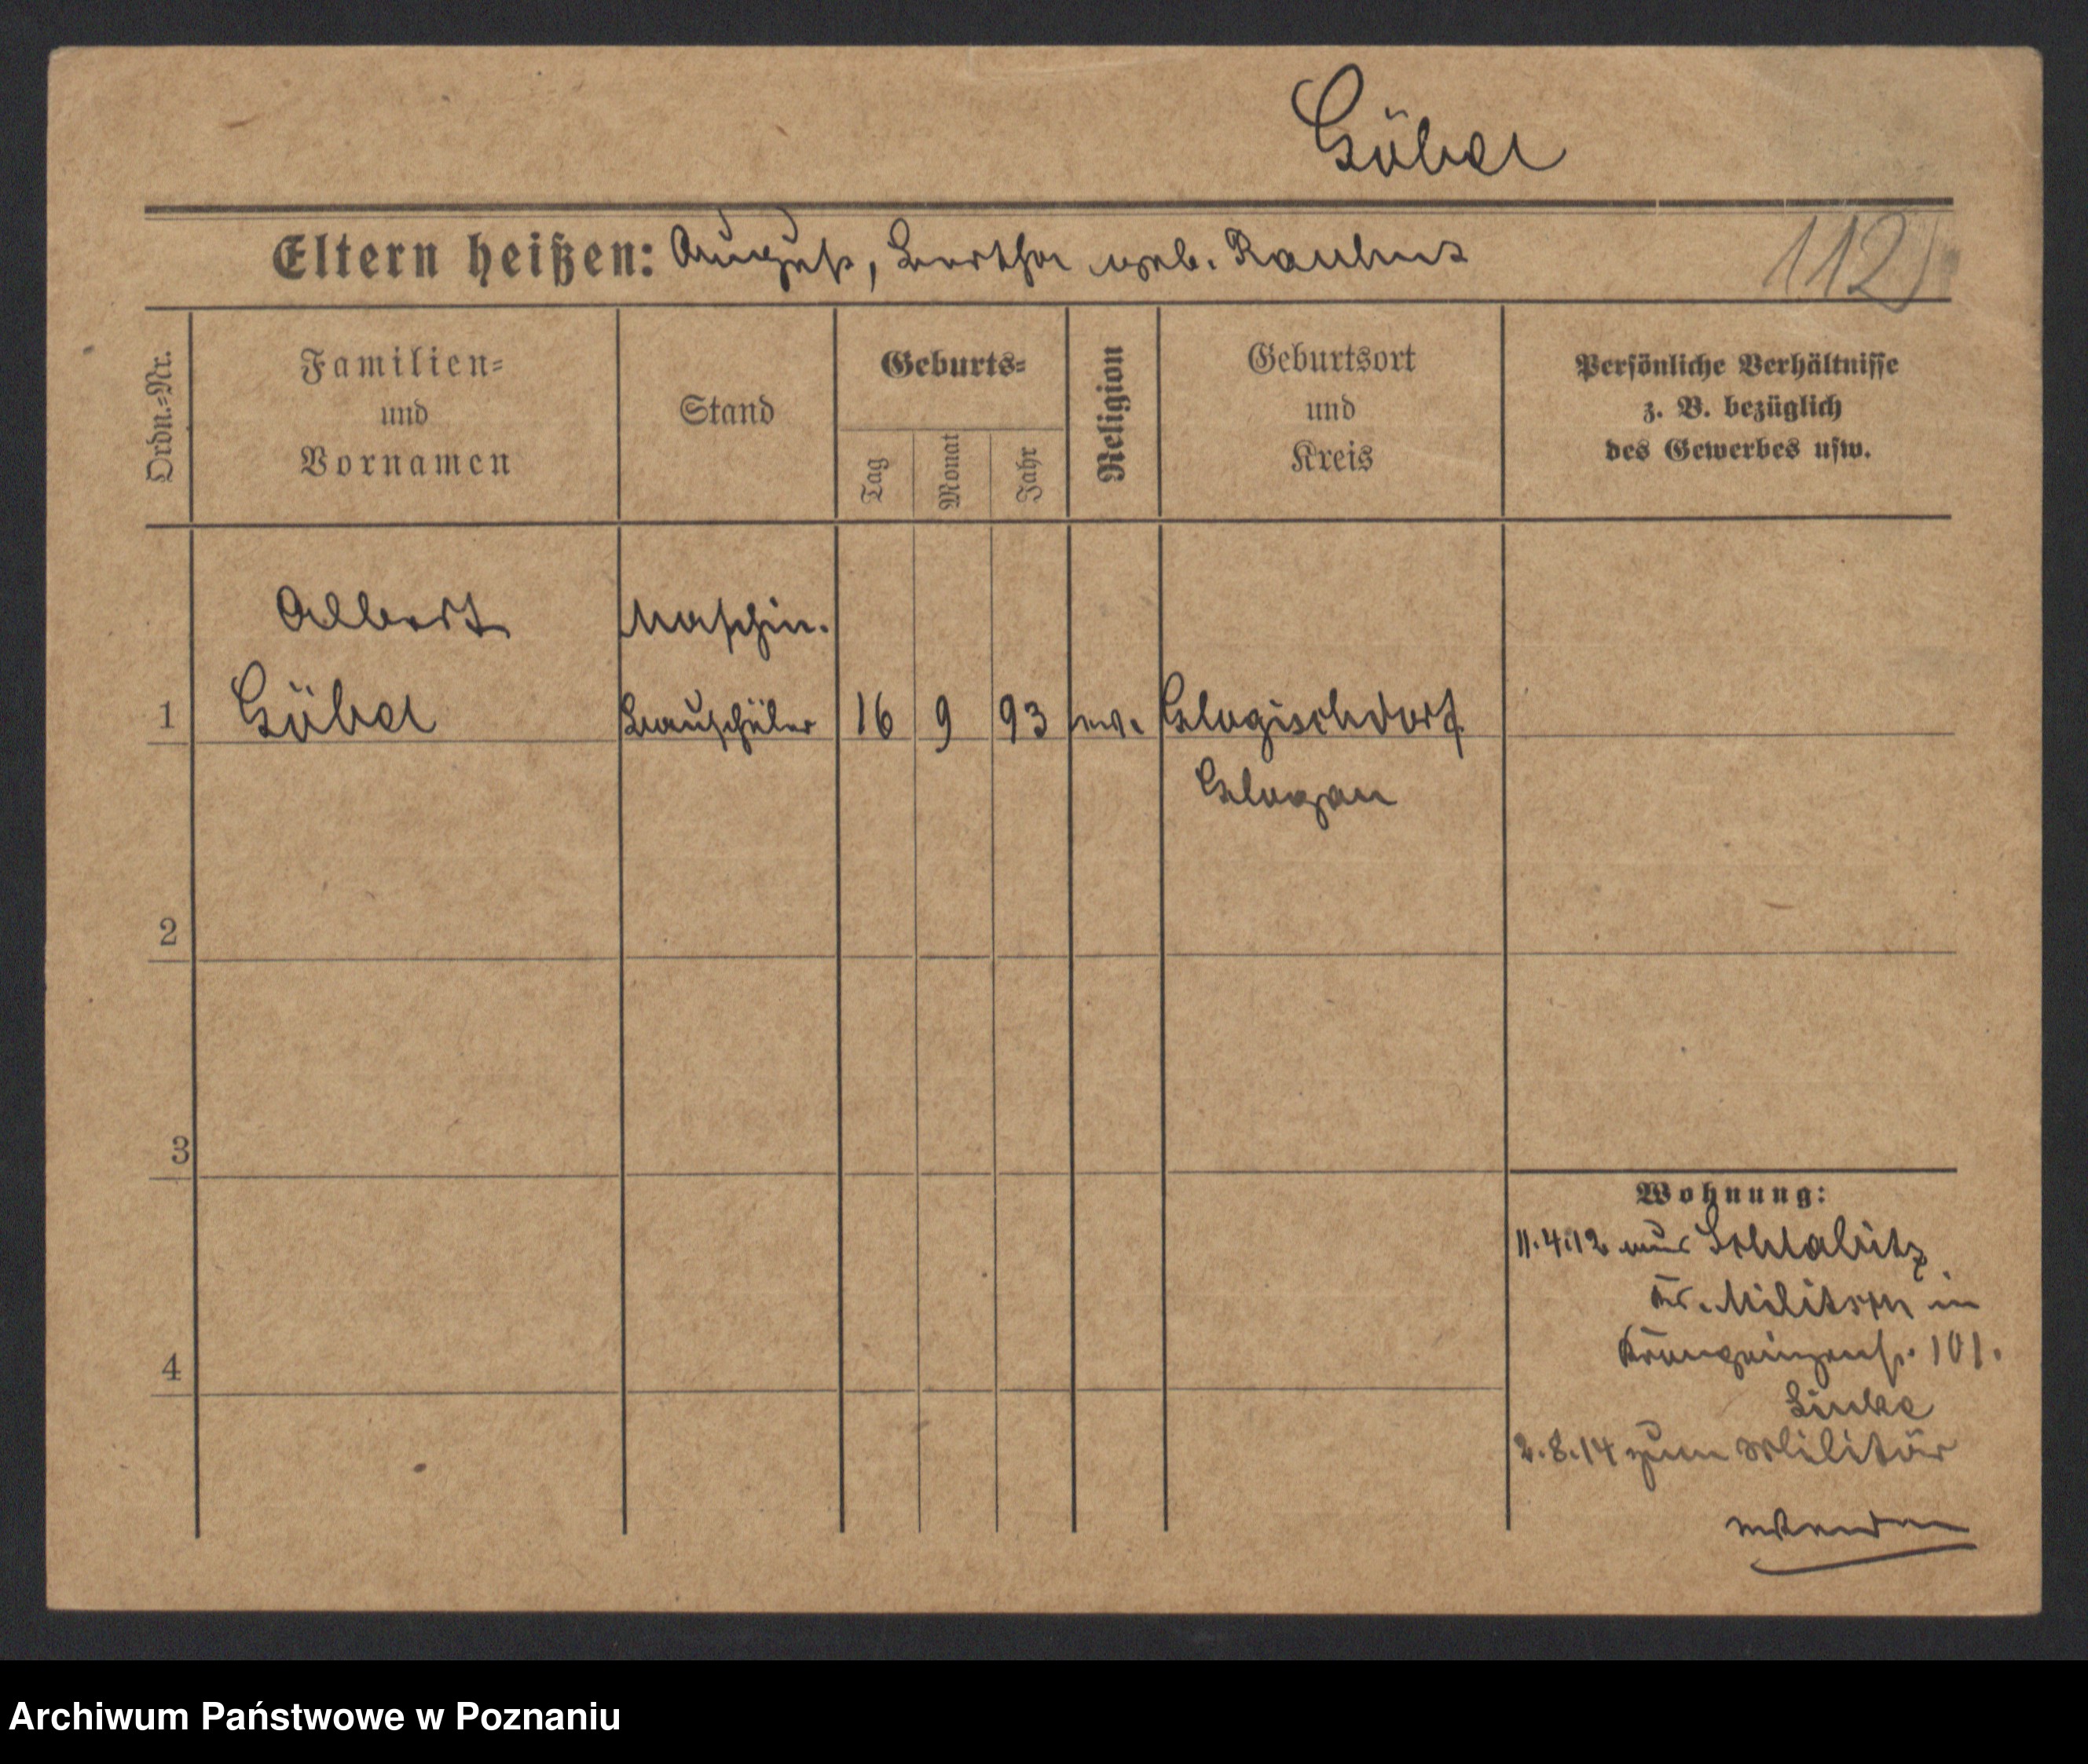 Göbel
Eltern heißen: August, Bertha geb. Rauhut
112
Ordn.=Nr.
Familien=
und
Vornamen
Stand
Geburts=
Tag
Monat
Jahr
Religion
Geburtsort
und
Kreis
Persönliche Verhältnisse
z. B. bezüglich
des Gewerbes usw.
Albert Maschin.
1 Göbel Bauschüler 16 9 93 ev. Glogischdorf
Glogau
2
3
4
Wohnung:
11.4.12 aus Schlabitz
Kr. Militsch in
Kronprinzenstr. 101.
Linke
2.8.14 zum Militär
wenden
Archiwum Państwowe w Poznaniu